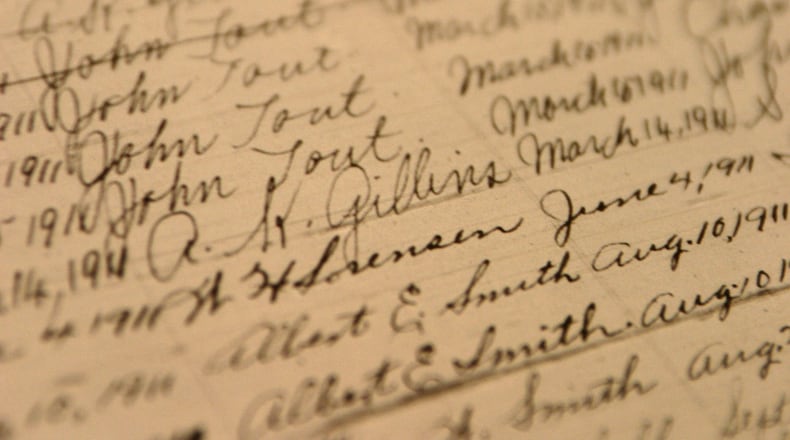 A. K.
John Tout March
1911 John Tout March 10 1911
1911 John Tout. March 10 1911
1911 John Tout. March 10 1911
14, 1911 A. K. Gillins March 14, 1911 S
4 1911 W H Sorensen June 4, 1911
10, 1911 Albert E. Smith Aug. 10, 1911
Albert E Smith. Aug. 10
Smith Aug.